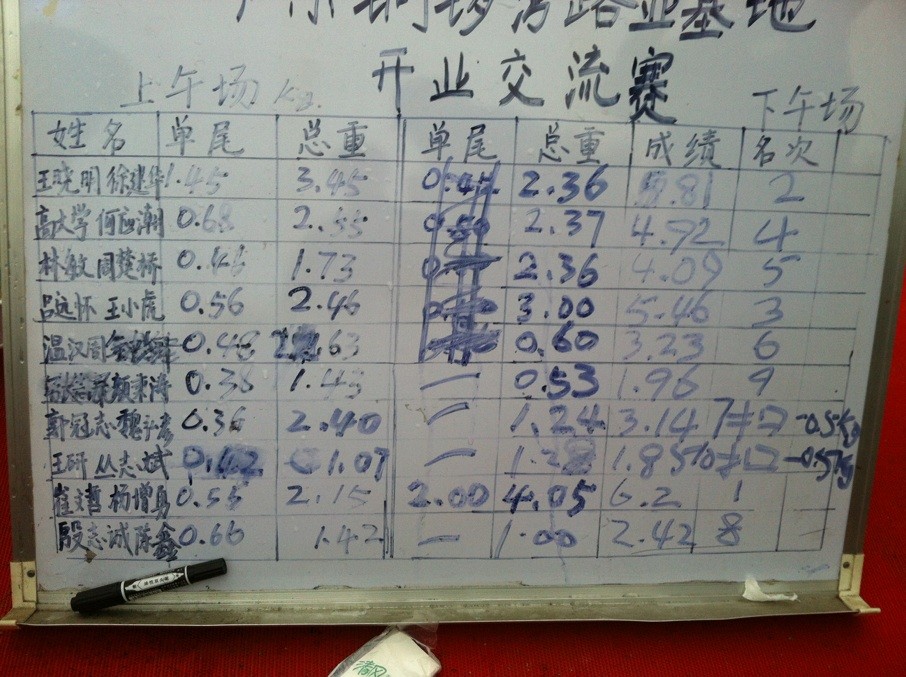 路亚基地
开业交流赛
上午场 Kg. 下午场
姓名 单尾 总重 单尾 总重 成绩 名次
王晓明 徐建华 1.45 3.45 2.36 5.81 2
高大学 何应潮 0.68 2.55 0.50 2.37 4.92 4
林敏 周楚桥 1.73 2.36 4.09 5
吕远怀 王小虎 0.56 2.46 3.00 5.46 3
温汉周 0.48 2.63 0.60 3.23 6
0.38 1.43 — 0.53 1.96 9
郭冠志 0.36 2.40 — 1.24 3.14 7 -0.5kg
王研 丛志斌 0.42 1.07 — 1.28 1.85 10 -0.5kg
崔文哲 杨增勇 0.55 2.15 2.00 4.05 6.2 1
殷志诚 陈鑫 0.66 1.42 — 1.00 2.42 8
清风